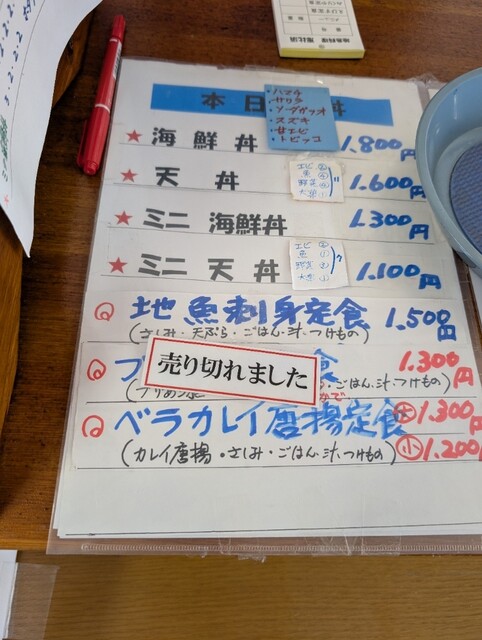 本日
丼
・ハマチ
・サワラ
・ソーダガツオ
・スズキ
・甘エビ
・トビッコ
★ 海鮮丼 1.800円
★ 天丼 1.600円
エビ ②
魚
野菜
★ ミニ 海鮮丼 1.300円
★ ミニ 天丼 1.100円
エビ ②
魚 ①
野菜 ②
地魚刺身定食 1.500円
(さしみ・天ぷら・ごはん・汁・つけもの)
食 1.300円
売り切れました
・ごはん・汁・つけもの)
ベラカレイ唐揚定食 大 1.300
(カレイ唐揚・さしみ・ごはん・汁・つけもの) 小 1.200